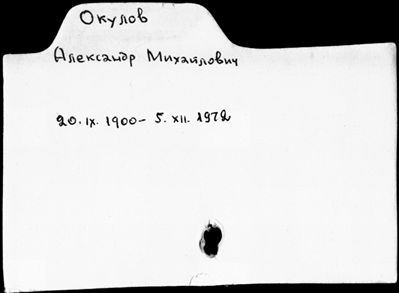 Окулов
Александр Михайлович
20. IX. 1900 – 5. XII. 1972